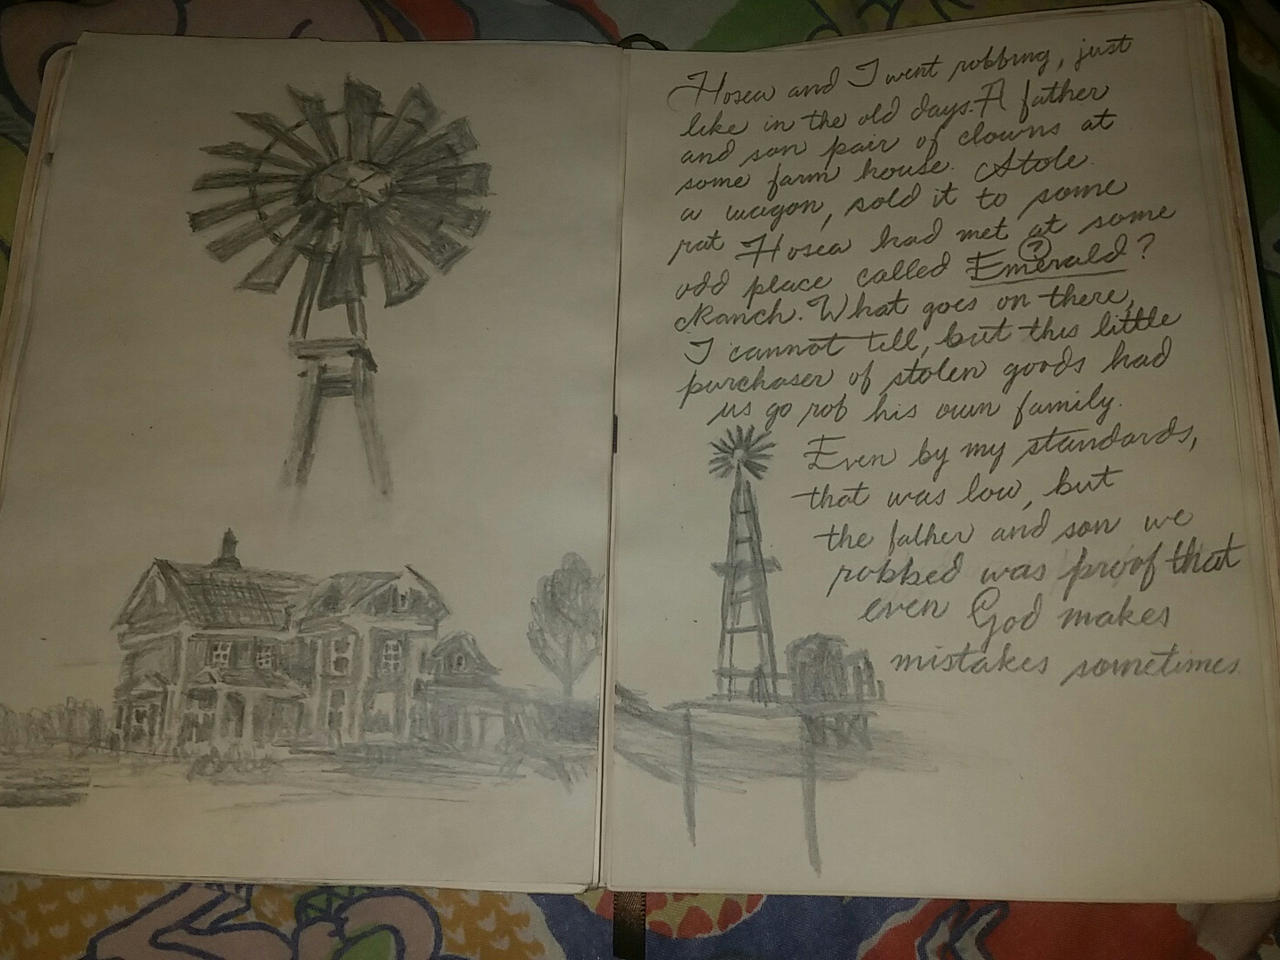 Hosea and I went robbing, just
like in the old days. A father
and son pair of clowns at
some farm house. Stole
a wagon, sold it to some
rat Hosea had met at some
odd place called Emerald ?
(?)
Ranch. What goes on there,
I cannot tell, but this little
purchaser of stolen goods had
us go rob his own family.
Even by my standards,
that was low, but
the father and son we
robbed was proof that
even God makes
mistakes sometimes.